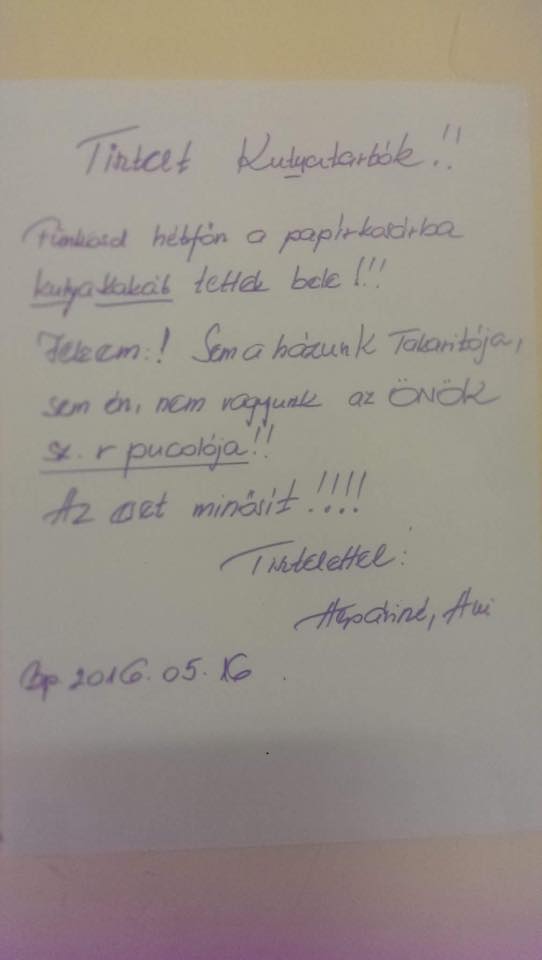 Tisztelt Kutyatartók!!
Pünkösd hétfőn a papírkosárba
kutyakakát tettek bele!!!
Jelzem:! Sem a házunk Takarítója,
sem én, nem vagyunk az ÖNÖK
sz. r pucolója!!
Az eset minősít!!!!
Tisztelettel:
Bp 2016.05.16